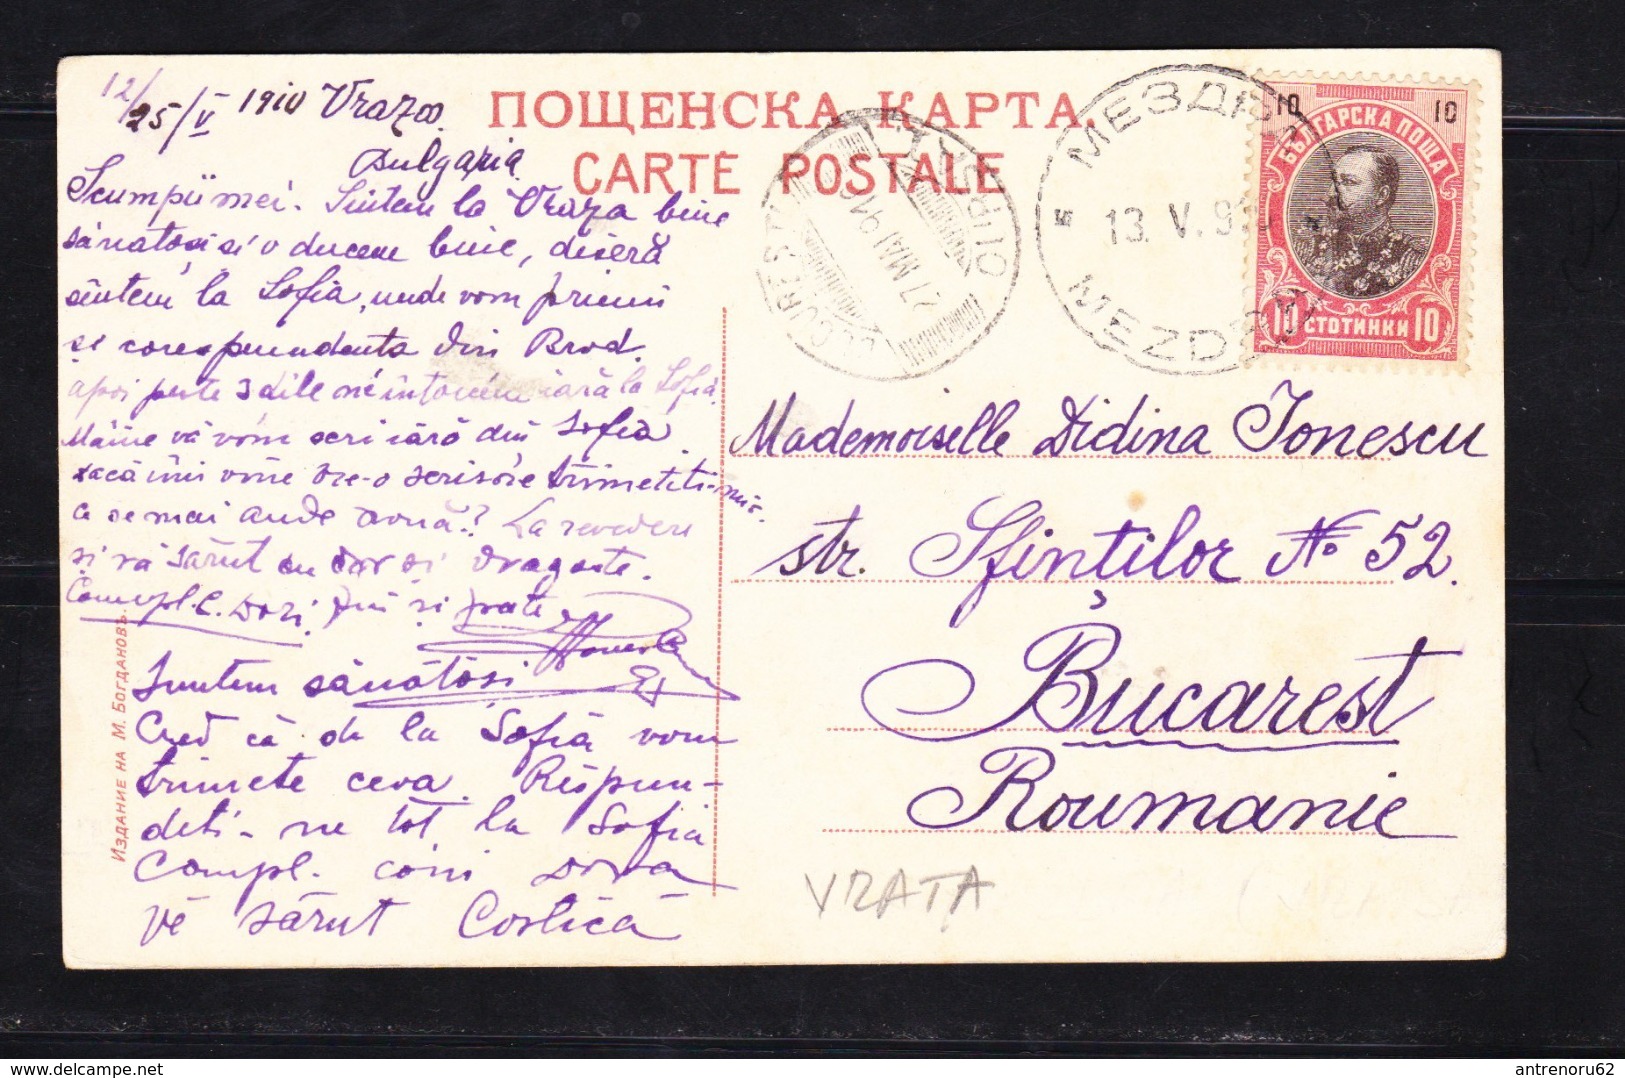 12/25/V 1910 Vraza
Bulgaria
ПОЩЕНСКА КАРТА.
CARTE POSTALE
Scumpii mei. Suntem la Vraza bine
sănatoși și o ducem bine, diseră
suntem la Sofia, unde vom primi
și corespundenta din Brod.
apoi peste 3 dile ne intorcem iară la Sofia
Mâine vă vom scri iară din Sofia
dacă îmi vine vre-o scrisore trimeteti-mi-o.
ce se mai aude aonă? La revedere
și vă sărut cu dor și dragoste.
Compl. C. Dori, și
Suntem sănătosi
Cred că de la Sofia vom
trimete ceva. Respun-
deti-ne tot la Sofia
Compl.
vĕ sărut Costică
Издание на М. Богдановъ.
BUCURESTI
27 MAI 910
МЕЗДРА
13.V.910
MEZDRA
10 10
БЪЛГАРСКА ПОЩА
10 СТОТИНКИ 10
Mademoiselle Didina Ionescu
str. Sfinților No 52.
Bucarest
Roumanie
VRATA
antrenoru62